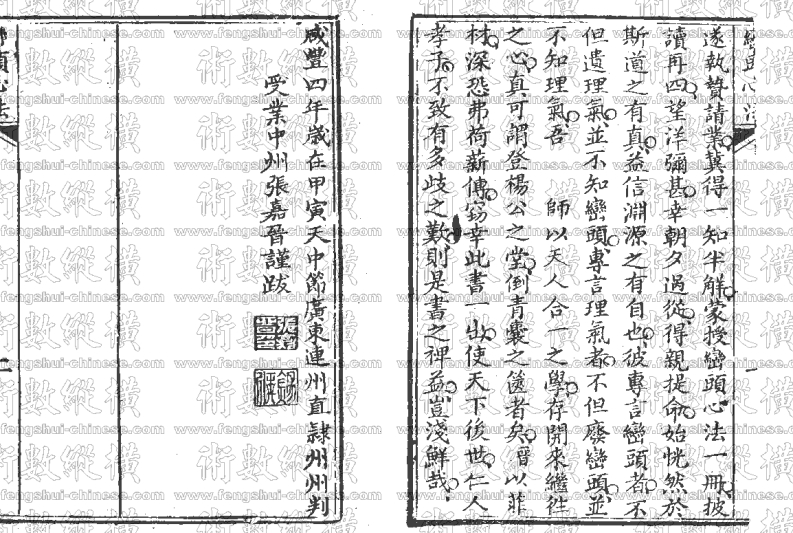 遂執贄請業冀得一知半解蒙授巒頭心法一冊披
讀再四望洋彌甚幸朝夕過從得親提命始恍然於
斯道之有真益信淵源之有自也彼專言巒頭者不
但遺理氣並不知巒頭專言理氣者不但廢巒頭並
不知理氣吾　師以天人合一之學存開來繼往
之心真可謂登楊公之堂倒青囊之篋者矣晉以菲
材深恐弗荷薪傳竊幸此書一出使天下後世仁人
孝子不致有多歧之歎則是書之裨益豈淺鮮哉
咸豐四年歲在甲寅天中節廣東連州直隸州州判
受業中州張嘉晉謹跋
術數縱橫
www.fengshui-chinese.com